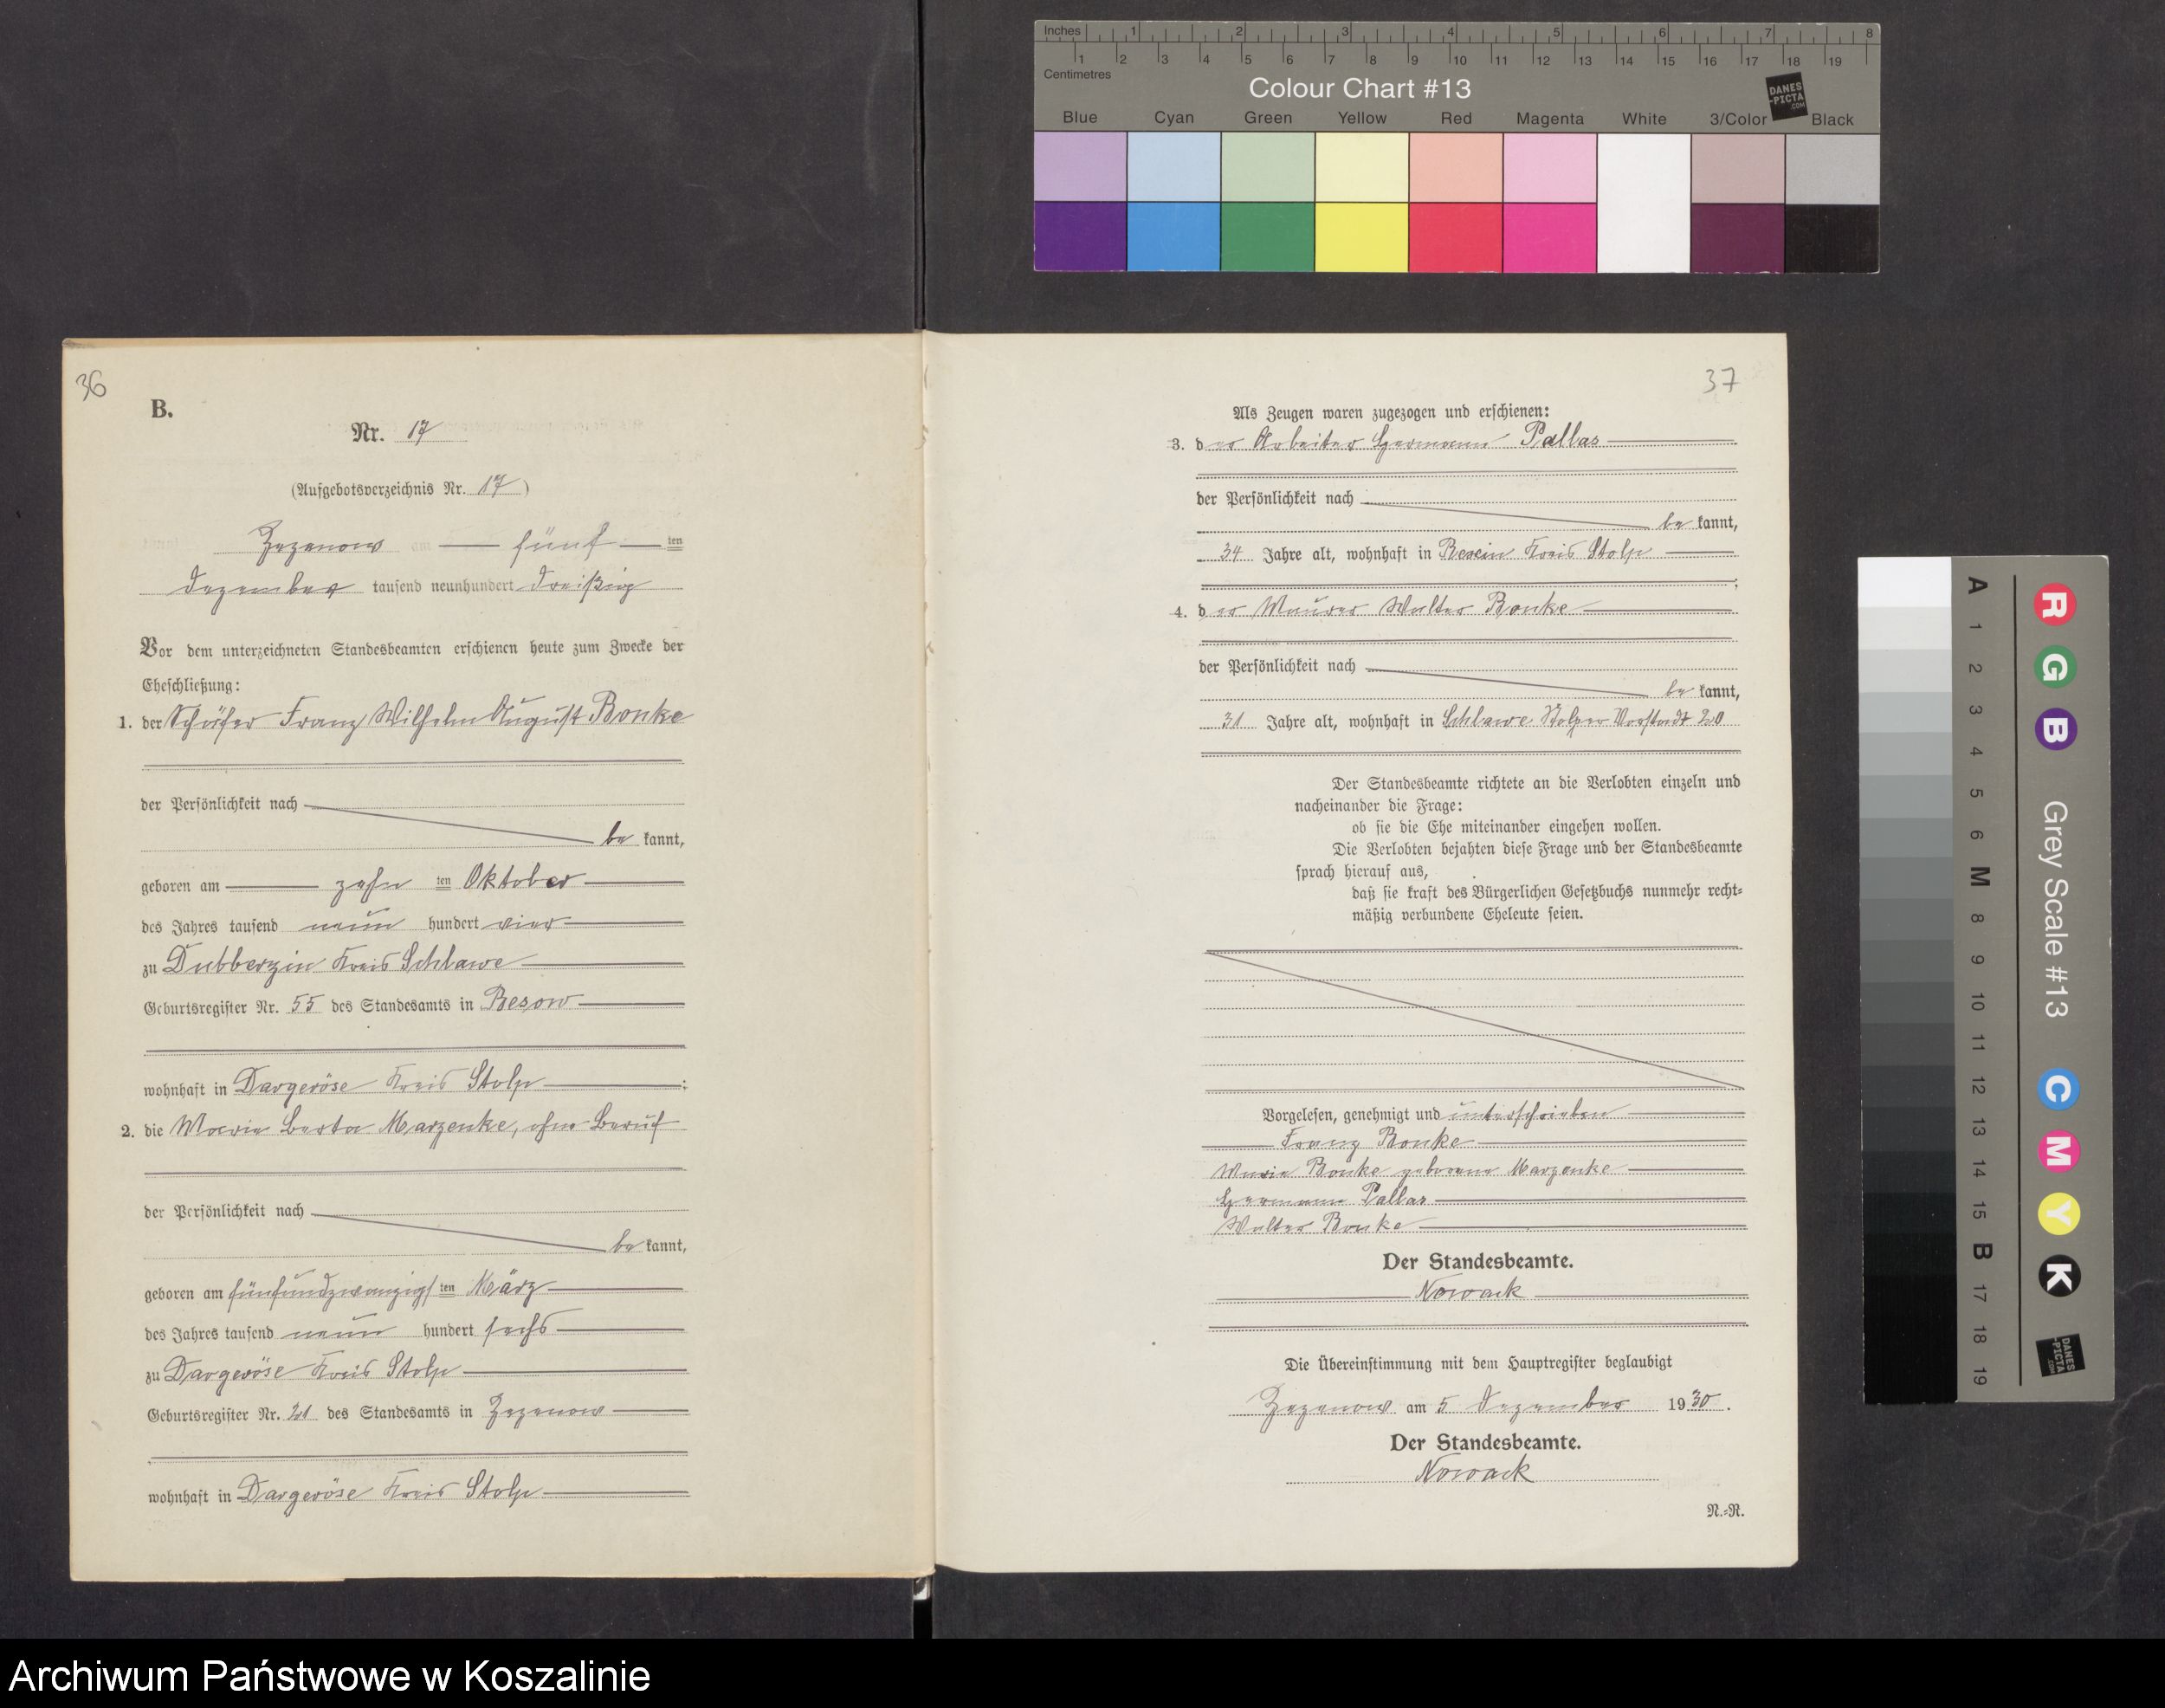 Inches 1 2 3 4 5 6 7 8
1 2 3 4 5 6 7 8 9 10 11 12 13 14 15 16 17 18 19
Centimetres
Colour Chart #13
DANES
-PICTA
.COM
Blue Cyan Green Yellow Red Magenta White 3/Color Black
36
B.
Nr. 17
(Aufgebotsverzeichnis Nr. 17)
Zezenow am fünf ten
Dezember tausend neunhundert dreißig
Vor dem unterzeichneten Standesbeamten erschienen heute zum Zwecke der
Eheschließung:
1. der Schäfer Franz Wilhelm August Bonke
der Persönlichkeit nach
be kannt,
geboren am zehn ten Oktober
des Jahres tausend neun hundert vier
zu Dubberzin Kreis Schlawe
Geburtsregister Nr. 55 des Standesamts in Besow
wohnhaft in Dargeröse Kreis Stolp ;
2. die Marie Berta Marzenke, ohne Beruf
der Persönlichkeit nach
be kannt,
geboren am fünfundzwanzigs ten März
des Jahres tausend neun hundert sechs
zu Dargeröse Kreis Stolp
Geburtsregister Nr. 21 des Standesamts in Zezenow
wohnhaft in Dargeröse Kreis Stolp
37
Als Zeugen waren zugezogen und erschienen:
3. der Arbeiter Hermann Pallas
der Persönlichkeit nach
be kannt,
34 Jahre alt, wohnhaft in Kreis Stolp
;
4. der Maurer Walter Bonke
der Persönlichkeit nach
be kannt,
31 Jahre alt, wohnhaft in Schlawe Stolper Vorstadt 20
Der Standesbeamte richtete an die Verlobten einzeln und
nacheinander die Frage:
ob sie die Ehe miteinander eingehen wollen.
Die Verlobten bejahten diese Frage und der Standesbeamte
sprach hierauf aus,
daß sie kraft des Bürgerlichen Gesetzbuchs nunmehr recht-
mäßig verbundene Eheleute seien.
Vorgelesen, genehmigt und unterschrieben
Franz Bonke
Marie Bonke geborene Marzenke
Hermann Pallas
Walter Bonke
Der Standesbeamte.
Nowack
Die Übereinstimmung mit dem Hauptregister beglaubigt
Zezenow am 5 Dezember 1930.
Der Standesbeamte.
Nowack
N.-R.
A 1 2 3 4 5 6 M 8 9 10 11 12 13 14 15 B 17 18 19
R G B Grey Scale #13 C M Y K
DANES
-PICTA
.COM
Archiwum Państwowe w Koszalinie